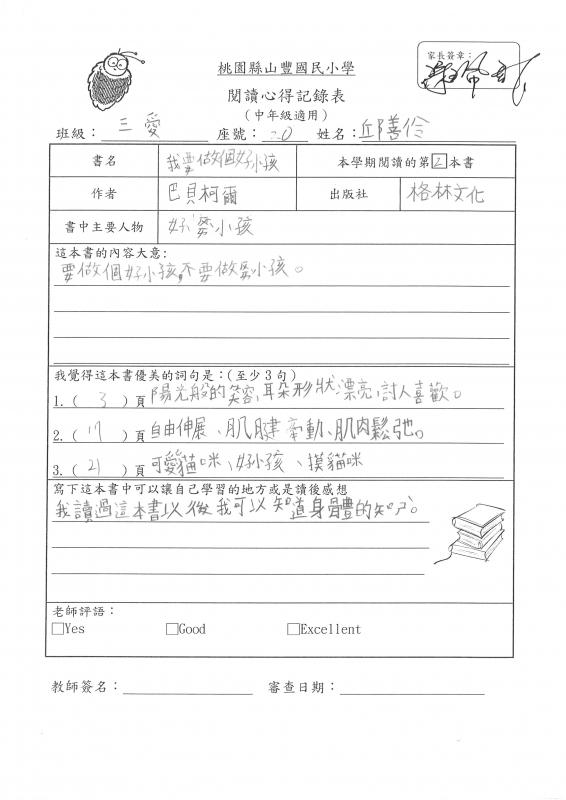 家長簽章：
桃園縣山豐國民小學
閱讀心得記錄表
（中年級適用）
班級：三愛 座號：20 姓名：邱善伶
書名 我要做個好小孩 本學期閱讀的第2本書
作者 巴貝柯爾 出版社 格林文化
書中主要人物 好小孩
這本書的內容大意：
要做個好小孩，不要做小孩。
我覺得這本書優美的詞句是：（至少3句）
1.（ 3 ）頁 陽光般的笑容、耳朵形狀漂亮、討人喜歡。
2.（ 17 ）頁 自由伸展、肌腱牽動、肌肉鬆弛。
3.（ 21 ）頁 可愛貓咪、好小孩、摸貓咪
寫下這本書中可以讓自己學習的地方或是讀後感想
我讀過這本書以後我可以知道身體的知。
老師評語：
□Yes □Good □Excellent
教師簽名： 審查日期：